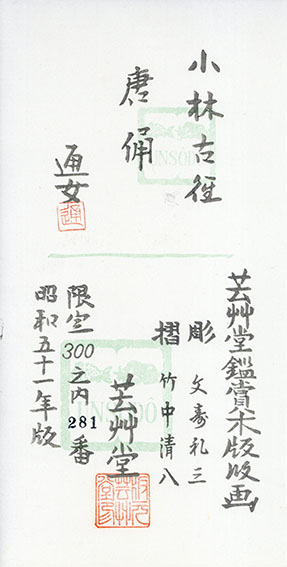 小林古径
唐俑
通女
通
UNSODO
芸艸堂鑑賞木版版画
彫 文寿礼三
摺 竹中清八
芸艸堂
限定300之内281番
昭和五十一年版
UNSODO